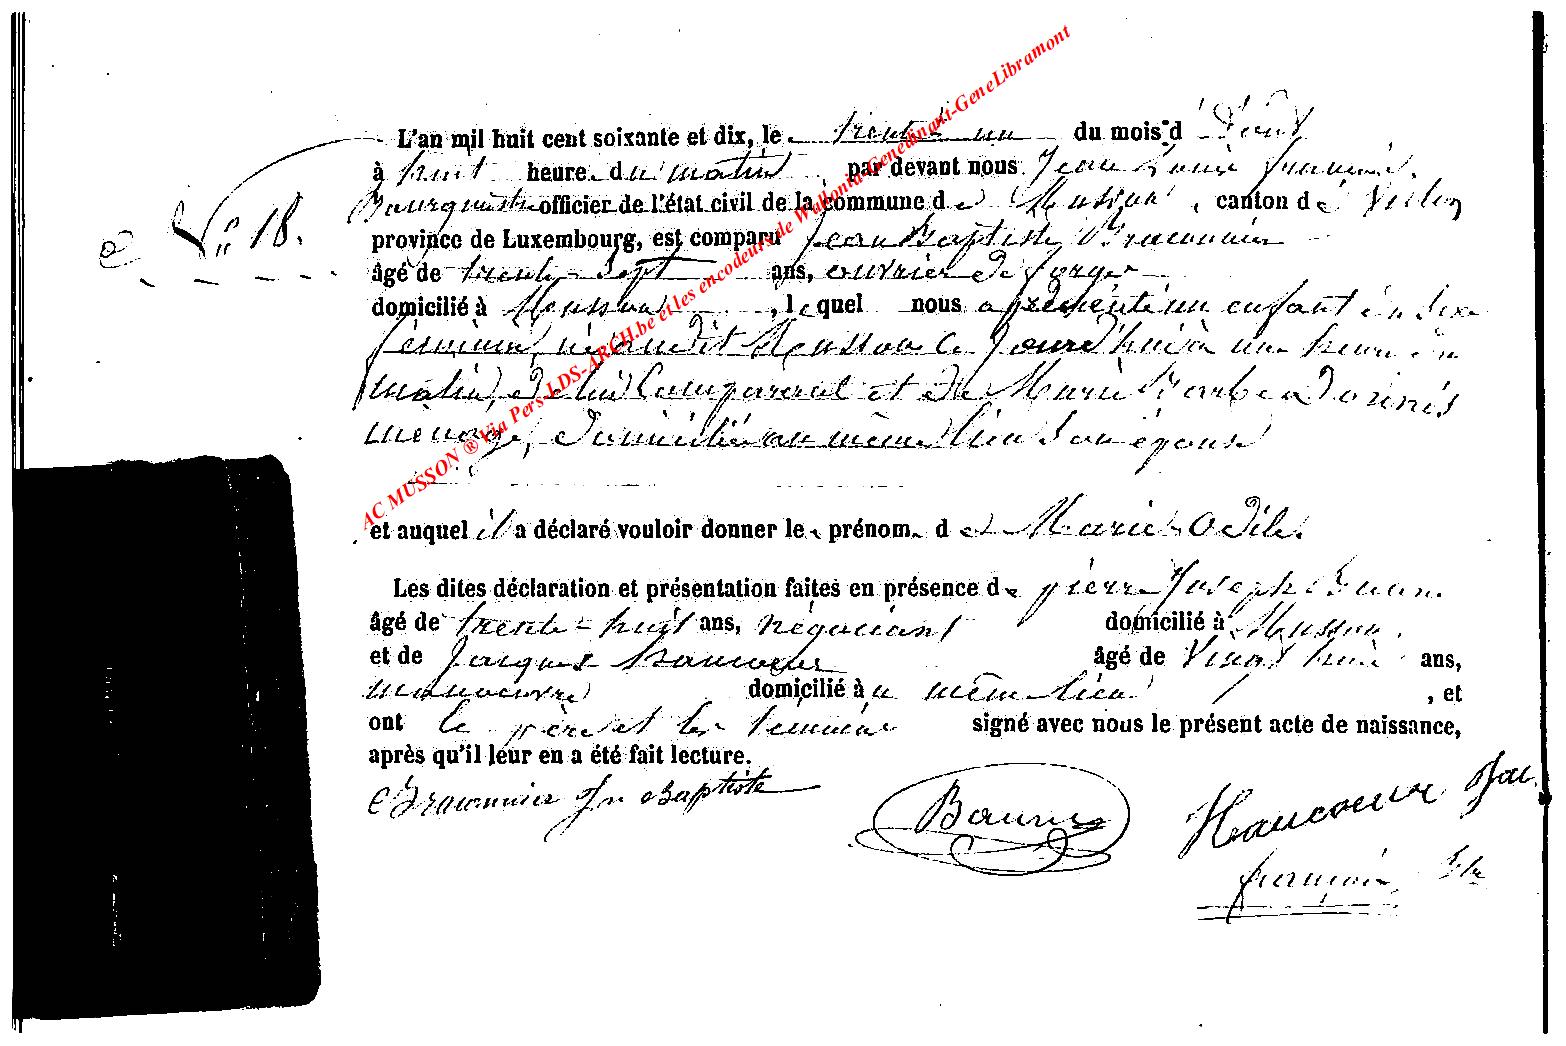 L'an mil huit cent soixante et dix, le trente un du mois d'Août
à huit heure du matin par devant nous Jean Louis François,
Bourgmestre officier de l'état civil de la commune de Musson, canton de Virton
N° 18. province de Luxembourg, est comparu Jean Baptiste Braconnier
âgé de trente-sept ans, ouvrier de forges
domicilié à Musson, lequel nous a présenté un enfant du sexe
féminin, né audit Musson ce jourd'hui à une heure du
matin, de lui comparant et de Marie Barbe
ménage, domiciliée au même lieu son épouse
et auquel il a déclaré vouloir donner le prénom de Marie Odile.
Les dites déclaration et présentation faites en présence de pierre Joseph
âgé de trente-huit ans, négociant domicilié à Musson,
et de Jacques Haucoeur âgé de Vingt huit ans,
manoeuvre domicilié au même lieu, et
ont le père et les témoins signé avec nous le présent acte de naissance,
après qu'il leur en a été fait lecture.
Braconnier Jn Baptiste Haucoeur Jac
françois
AC MUSSON ® Via Pers-LDS-ARCH.be et les encodeurs de Wallonia-Genedinant-GeneLibramont